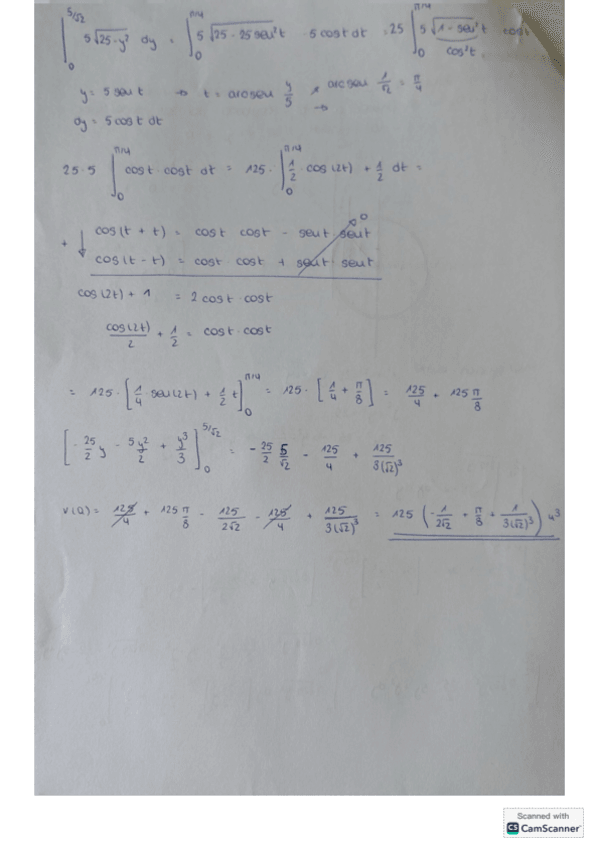 ∫₀^{5/√2} 5√(25-y²) dy = ∫₀^{π/4} 5√(25-25sen²t) · 5 cos t dt = 25 ∫₀^{π/4} 5√(1-sen²t) cos t
cos²t
y = 5 sen t → t = arcsen y/5 → arcsen 1/√2 = π/4
dy = 5 cos t dt
25·5 ∫₀^{π/4} cos t · cos t dt = 125 · ∫₀^{π/4} 1/2 · cos(2t) + 1/2 dt =
+ ↓ cos(t + t) = cos t cos t - sen t · sen t → 0
cos(t - t) = cos t · cos t + sen t · sen t
cos(2t) + 1 = 2 cos t · cos t
cos(2t)/2 + 1/2 = cos t · cos t
= 125 · [1/4 · sen(2t) + 1/2 t]₀^{π/4} = 125 · [1/4 + π/8] = 125/4 + 125 π/8
[-25/2 y - 5y²/2 + y³/3]₀^{5/√2} = -25/2 5/√2 - 125/4 + 125/3(√2)³
V(Q) = 125/4 + 125 π/8 - 125/2√2 - 125/4 + 125/3(√2)³ = 125 (-1/2√2 + π/8 + 1/3(√2)³) u³
Scanned with
CS CamScanner